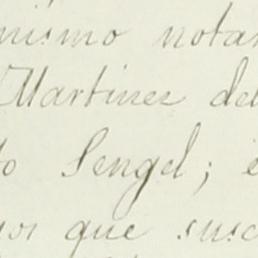 nismo notar
Martinez del
to Sengel; e
que susc